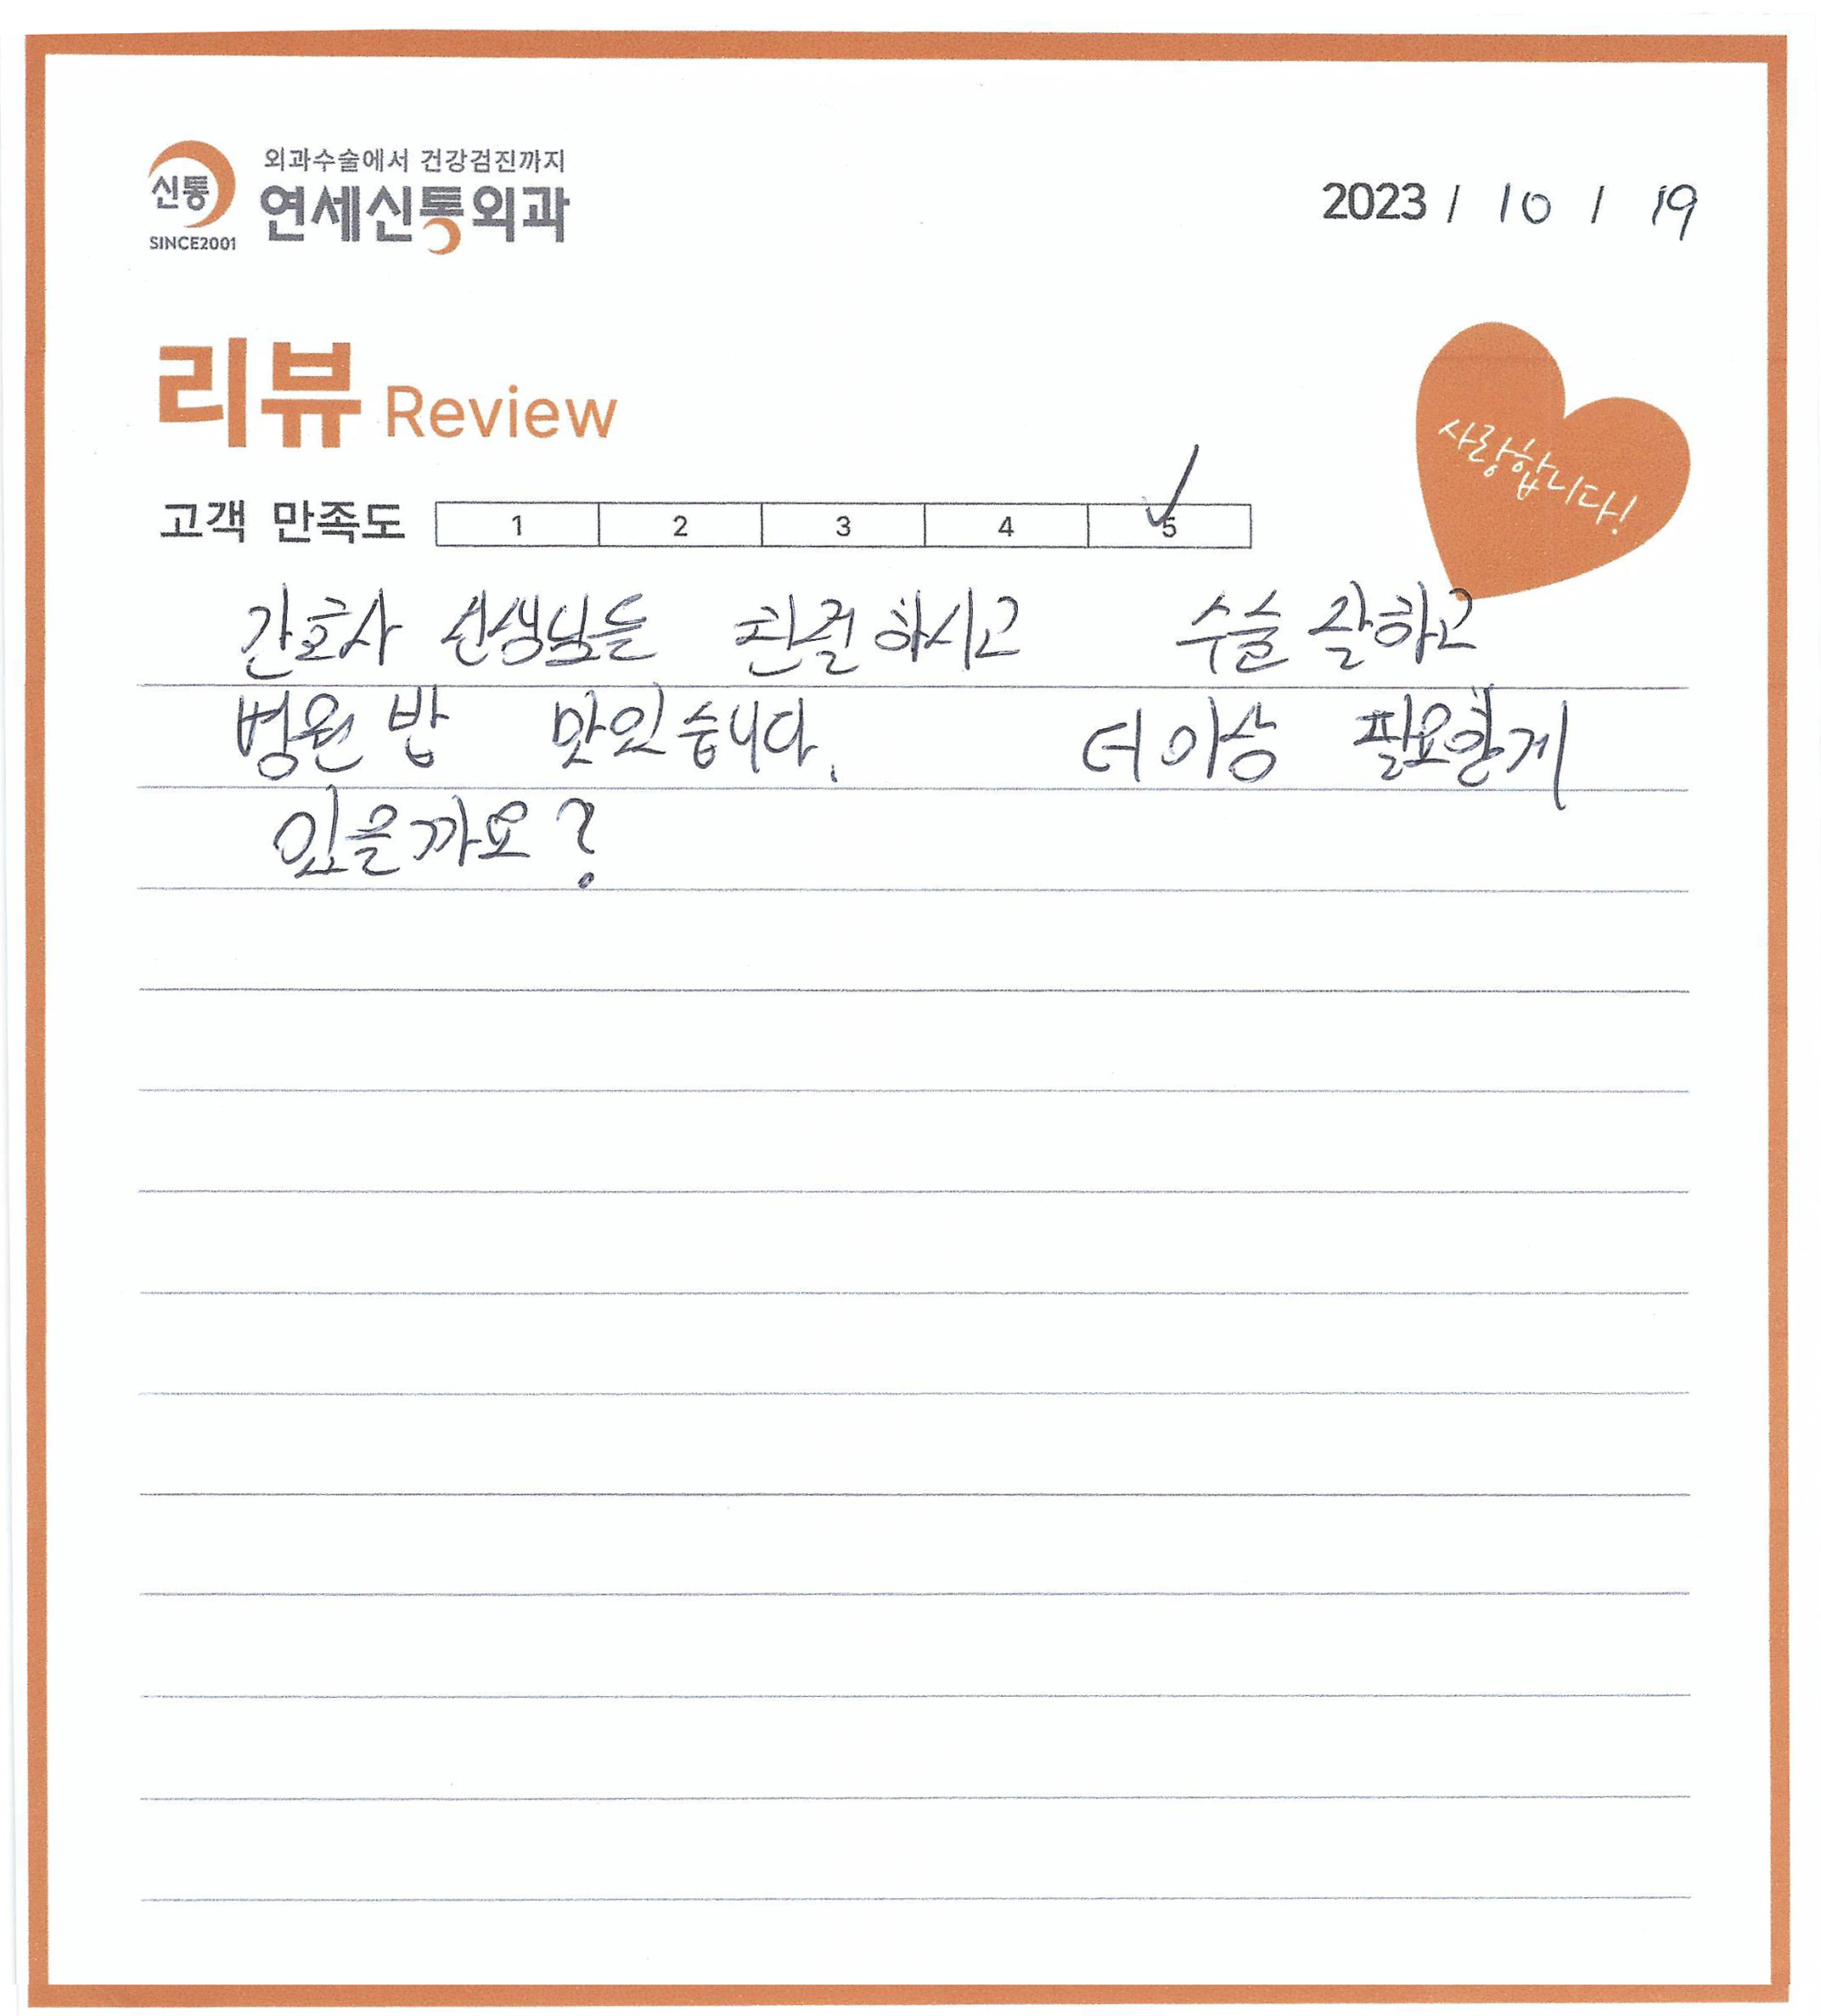 신통
SINCE2001
외과수술에서 건강검진까지
연세신통외과
2023 / 10 / 19
리뷰 Review
사랑합니다!
고객 만족도 1 2 3 4 5
간호사 선생님들 친절하시고 수술 잘하고
병원 밥 맛있습니다. 더 이상 필요한게
있을까요?